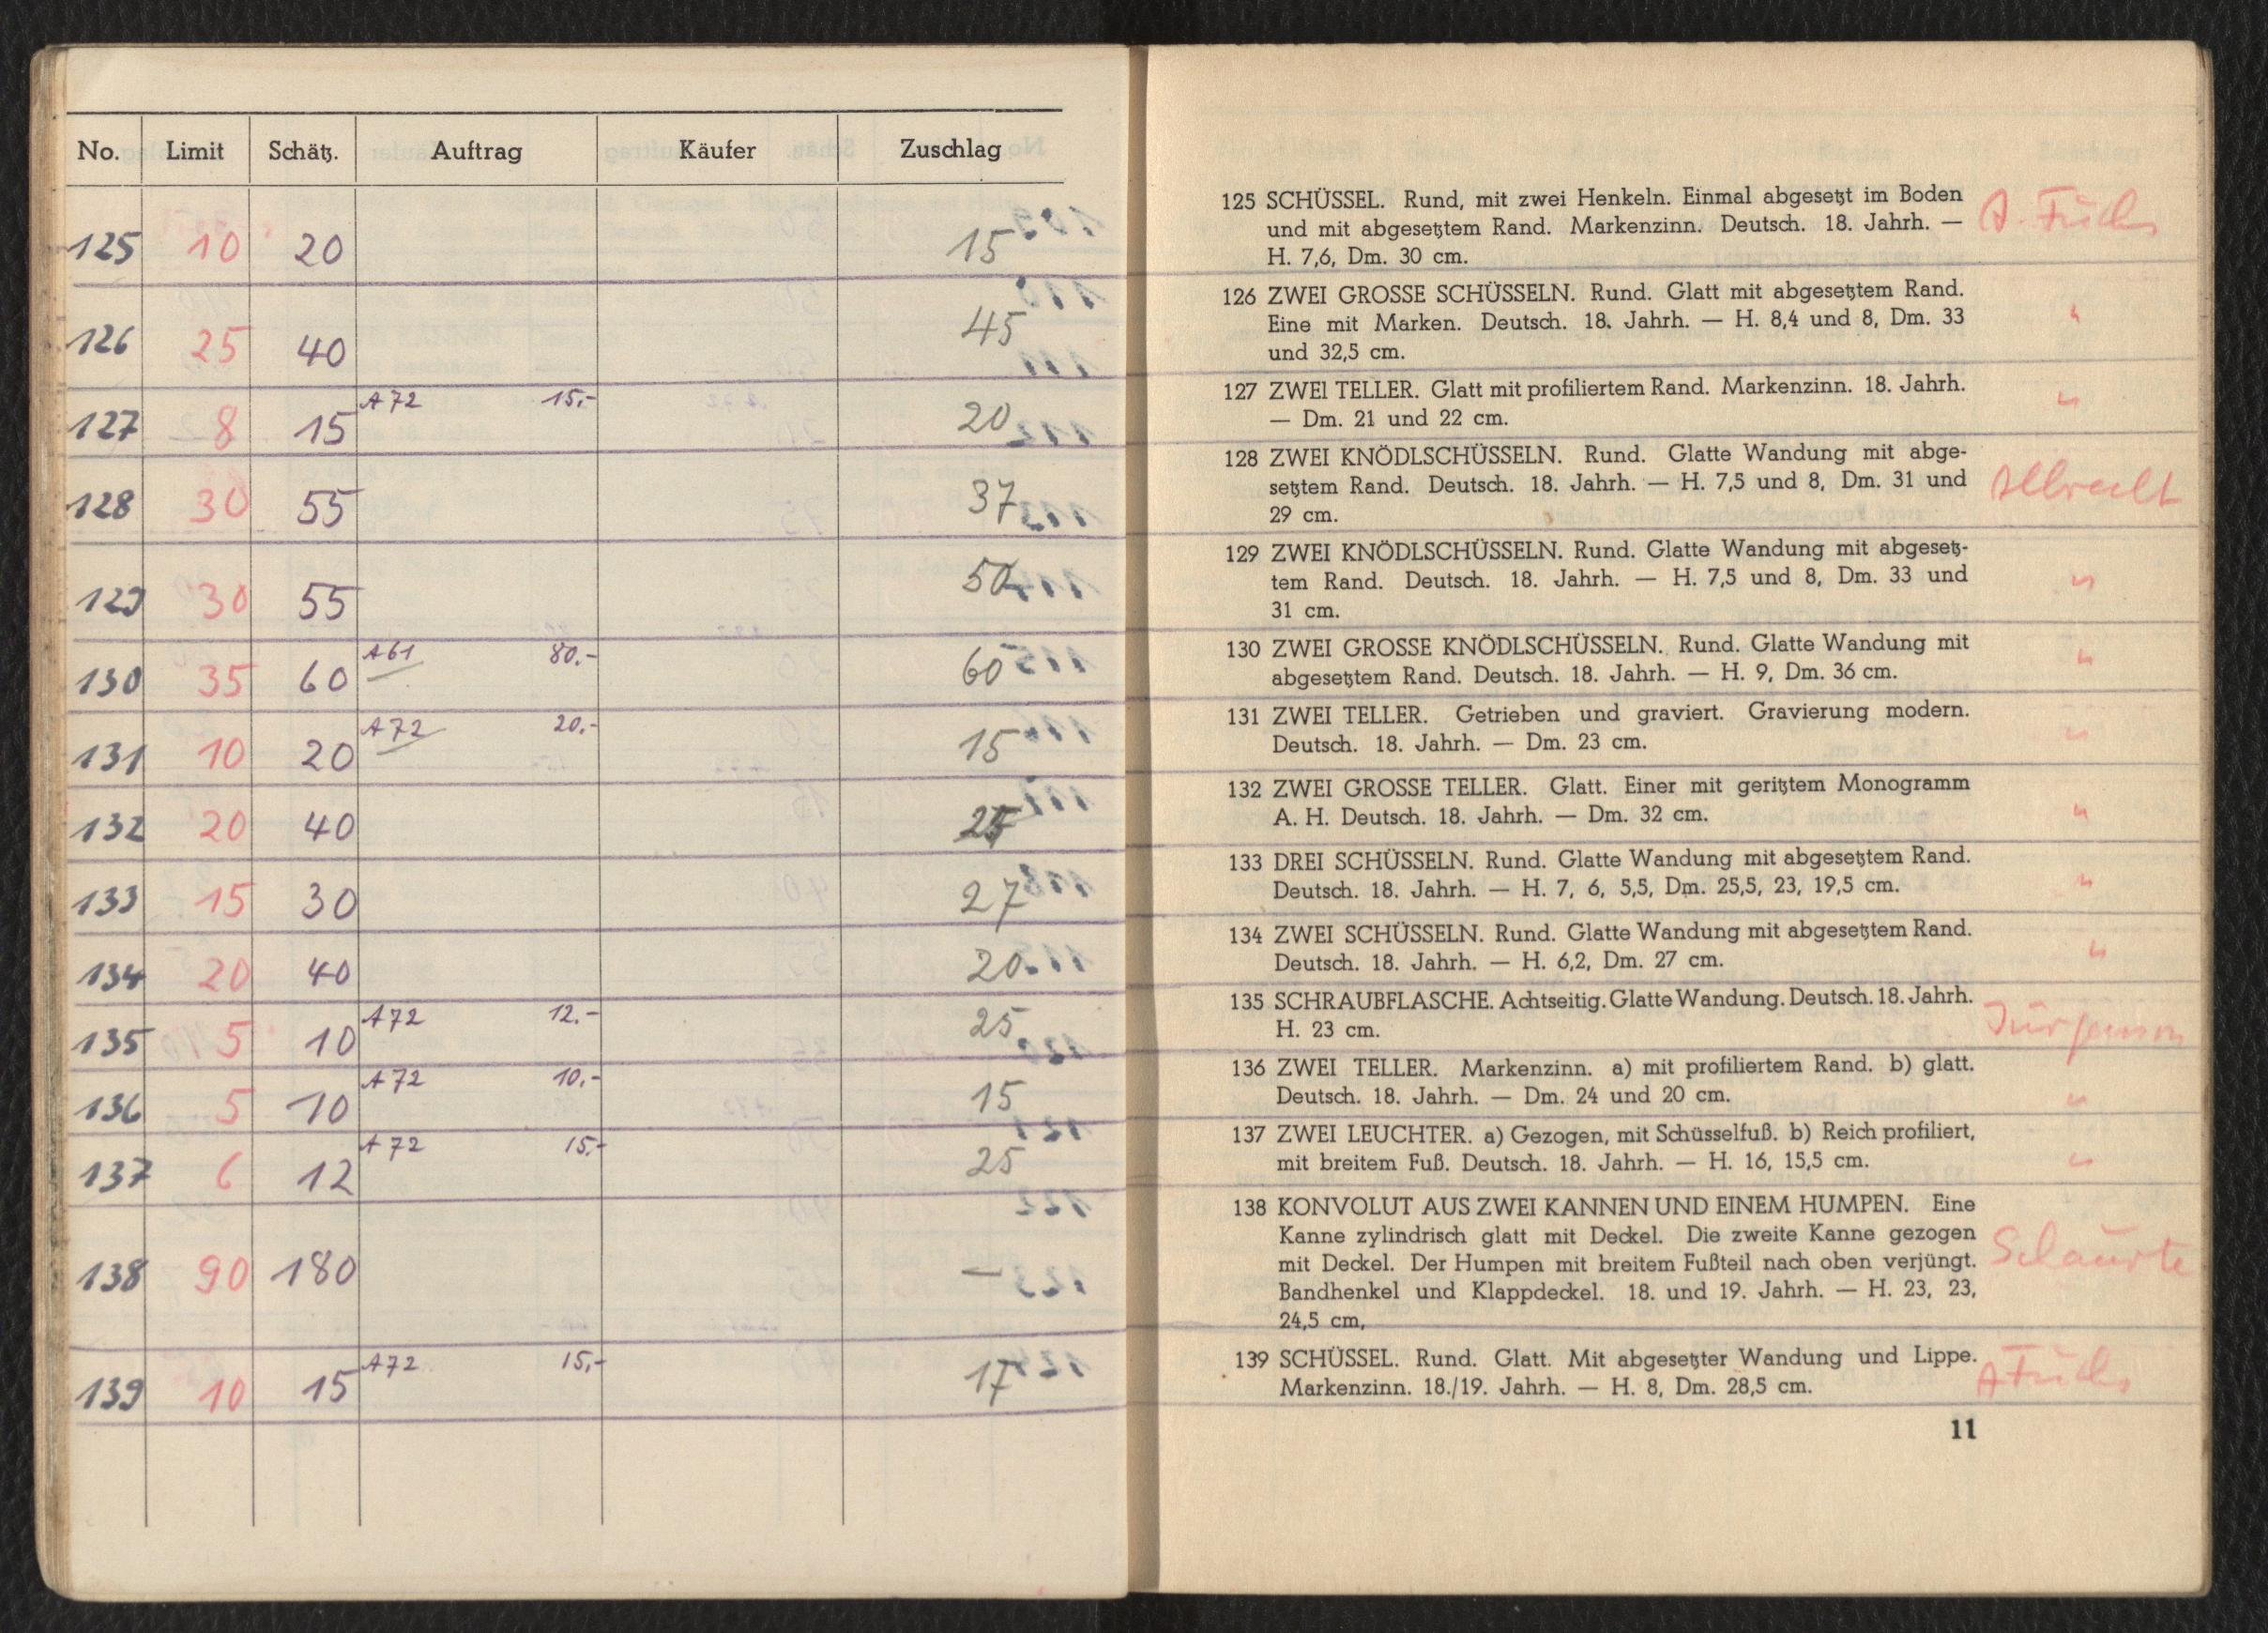 No. Limit Schätz. Auftrag Käufer Zuschlag
125 10 20 15
126 25 40 45
127 8 15 A72 15.- 20
128 30 55 37
129 30 55 50
130 35 60 A61 80.- 60
131 10 20 A72 20.- 15
132 20 40
133 15 30 27
134 20 40 20
135 5 10 A72 12.- 25
136 5 10 A72 10.- 15
137 6 12 A72 15.- 25
138 90 180 —
139 10 15 A72 15.- 17
125 SCHÜSSEL. Rund, mit zwei Henkeln. Einmal abgesetzt im Boden
und mit abgesetztem Rand. Markenzinn. Deutsch. 18. Jahrh. — A. Fuchs
H. 7,6, Dm. 30 cm.
126 ZWEI GROSSE SCHÜSSELN. Rund. Glatt mit abgesetztem Rand.
Eine mit Marken. Deutsch. 18. Jahrh. — H. 8,4 und 8, Dm. 33 "
und 32,5 cm.
127 ZWEI TELLER. Glatt mit profiliertem Rand. Markenzinn. 18. Jahrh. "
— Dm. 21 und 22 cm.
128 ZWEI KNÖDLSCHÜSSELN. Rund. Glatte Wandung mit abge-
setztem Rand. Deutsch. 18. Jahrh. — H. 7,5 und 8, Dm. 31 und Albrecht
29 cm.
129 ZWEI KNÖDLSCHÜSSELN. Rund. Glatte Wandung mit abgesetz-
tem Rand. Deutsch. 18. Jahrh. — H. 7,5 und 8, Dm. 33 und "
31 cm.
130 ZWEI GROSSE KNÖDLSCHÜSSELN. Rund. Glatte Wandung mit "
abgesetztem Rand. Deutsch. 18. Jahrh. — H. 9, Dm. 36 cm.
131 ZWEI TELLER. Getrieben und graviert. Gravierung modern. "
Deutsch. 18. Jahrh. — Dm. 23 cm.
132 ZWEI GROSSE TELLER. Glatt. Einer mit geritztem Monogramm
A. H. Deutsch. 18. Jahrh. — Dm. 32 cm. "
133 DREI SCHÜSSELN. Rund. Glatte Wandung mit abgesetztem Rand.
Deutsch. 18. Jahrh. — H. 7, 6, 5,5, Dm. 25,5, 23, 19,5 cm. "
134 ZWEI SCHÜSSELN. Rund. Glatte Wandung mit abgesetztem Rand.
Deutsch. 18. Jahrh. — H. 6,2, Dm. 27 cm. "
135 SCHRAUBFLASCHE. Achtseitig. Glatte Wandung. Deutsch. 18. Jahrh.
H. 23 cm.
136 ZWEI TELLER. Markenzinn. a) mit profiliertem Rand. b) glatt.
Deutsch. 18. Jahrh. — Dm. 24 und 20 cm. "
137 ZWEI LEUCHTER. a) Gezogen, mit Schüsselfuß. b) Reich profiliert,
mit breitem Fuß. Deutsch. 18. Jahrh. — H. 16, 15,5 cm. "
138 KONVOLUT AUS ZWEI KANNEN UND EINEM HUMPEN. Eine
Kanne zylindrisch glatt mit Deckel. Die zweite Kanne gezogen
mit Deckel. Der Humpen mit breitem Fußteil nach oben verjüngt.
Bandhenkel und Klappdeckel. 18. und 19. Jahrh. — H. 23, 23,
24,5 cm,
139 SCHÜSSEL. Rund. Glatt. Mit abgesetzter Wandung und Lippe.
Markenzinn. 18./19. Jahrh. — H. 8, Dm. 28,5 cm. A Fuchs
11